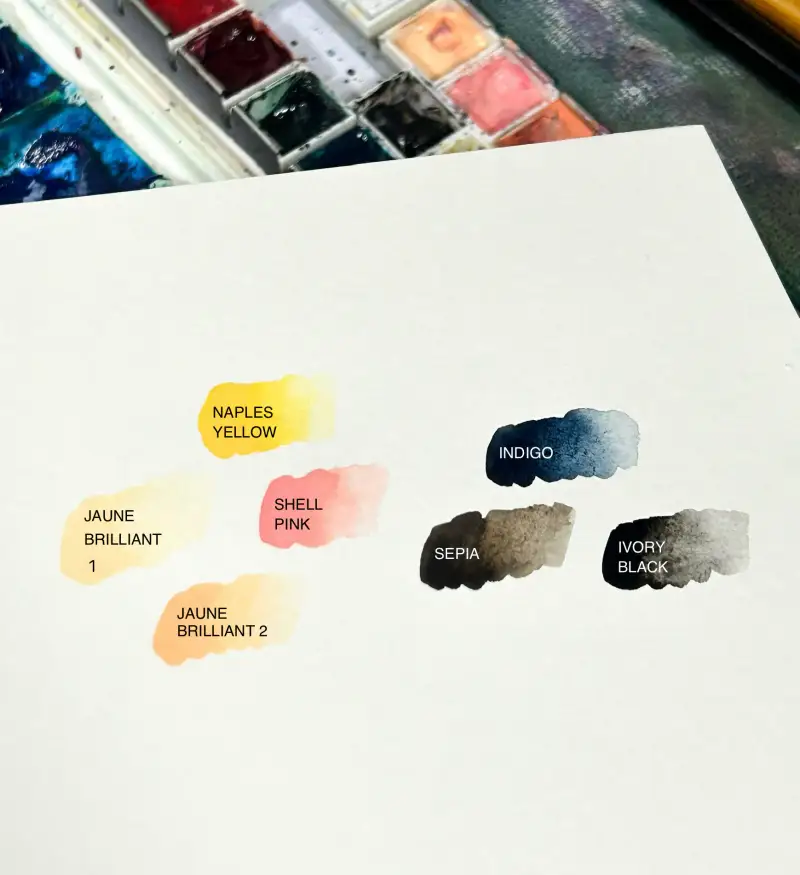 NAPLES
YELLOW
JAUNE
BRILLIANT
1
SHELL
PINK
JAUNE
BRILLIANT 2
INDIGO
SEPIA
IVORY
BLACK